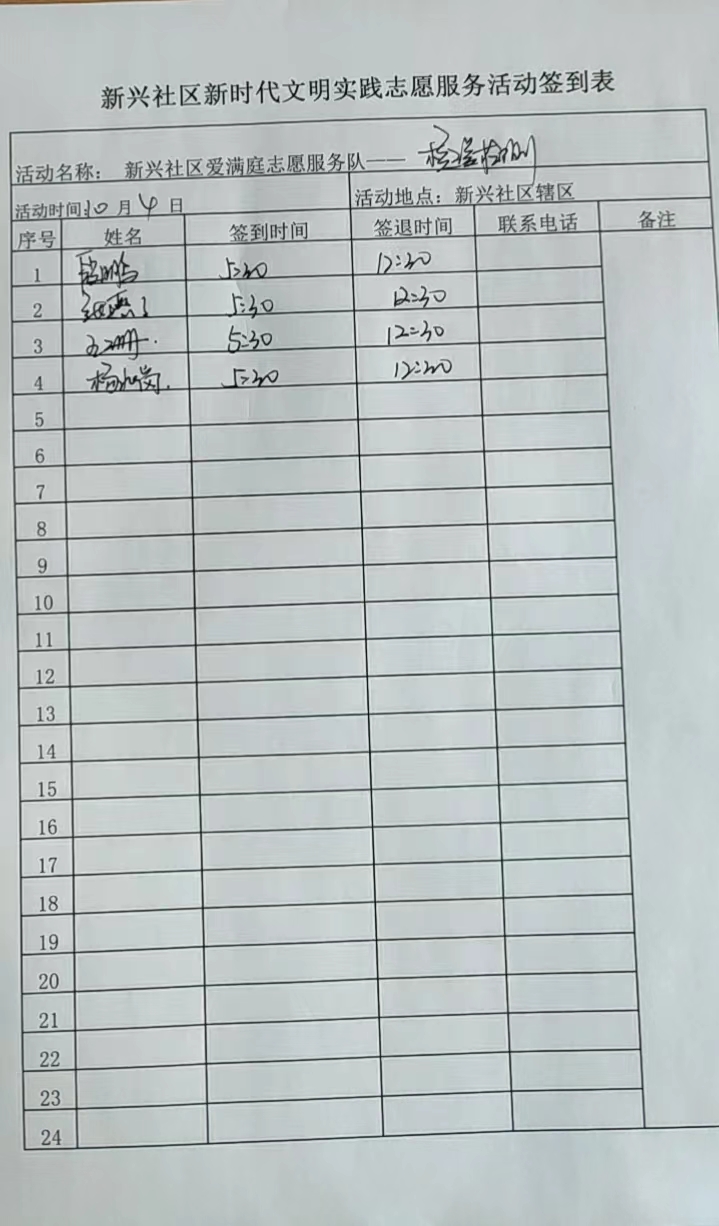 新兴社区新时代文明实践志愿服务活动签到表
活动名称： 新兴社区爱满庭志愿服务队—— 核酸检测
活动时间:10 月 4 日 活动地点：新兴社区辖区
序号 姓名 签到时间 签退时间 联系电话 备注
1 5:30 12:30
2 5:30 12:30
3 5:30 12:30
4 5:30 12:30
5
6
7
8
9
10
11
12
13
14
15
16
17
18
19
20
21
22
23
24